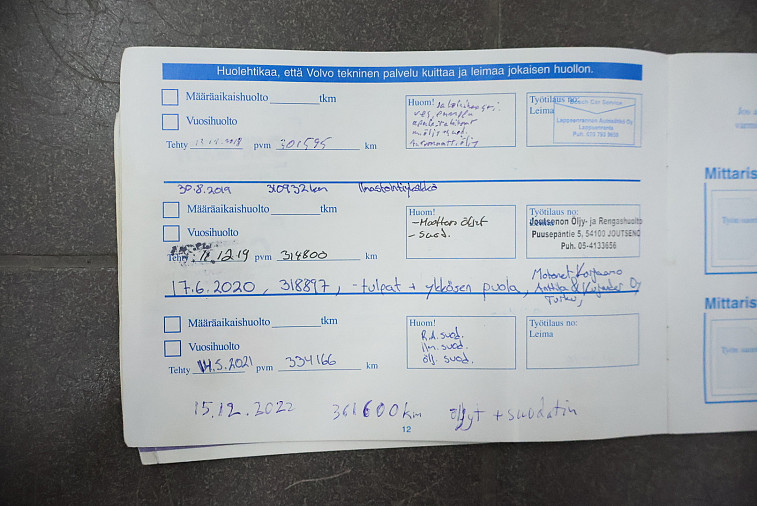 Huolehtikaa, että Volvo tekninen palvelu kuittaa ja leimaa jokaisen huollon.
Määräaikaishuolto tkm
Vuosihuolto
Tehty pvm 301595 km
Huom!
Työtilaus no:
Leima
Bosch Car Service
Lappeenrannan Autosähkö Oy
Lappeenranta
30.8.2019 310932km Ilmastointiykakkö
Määräaikaishuolto tkm
Vuosihuolto
Tehty 12.19 pvm 314800 km
Huom!
-Moottori öljyt
-suod.
Työtilaus no:
Leima
Joutsenon Öljy- ja Rengashuolto
Puusepäntie 5, 54100 JOUTSENO
Puh. 05-4133656
17.6.2020, 318897, -tulpat + ykkösen puola, Motonet Korjaamo
Anttila & Oy
Turku,
Määräaikaishuolto tkm
Vuosihuolto
Tehty 14.5.2021 pvm 334166 km
Huom!
R.A. suod.
ilm. suod.
ölj. suod.
Työtilaus no:
Leima
15.12.2022 361600km öljyt + suodatin
12
Mittaris
Mittaris